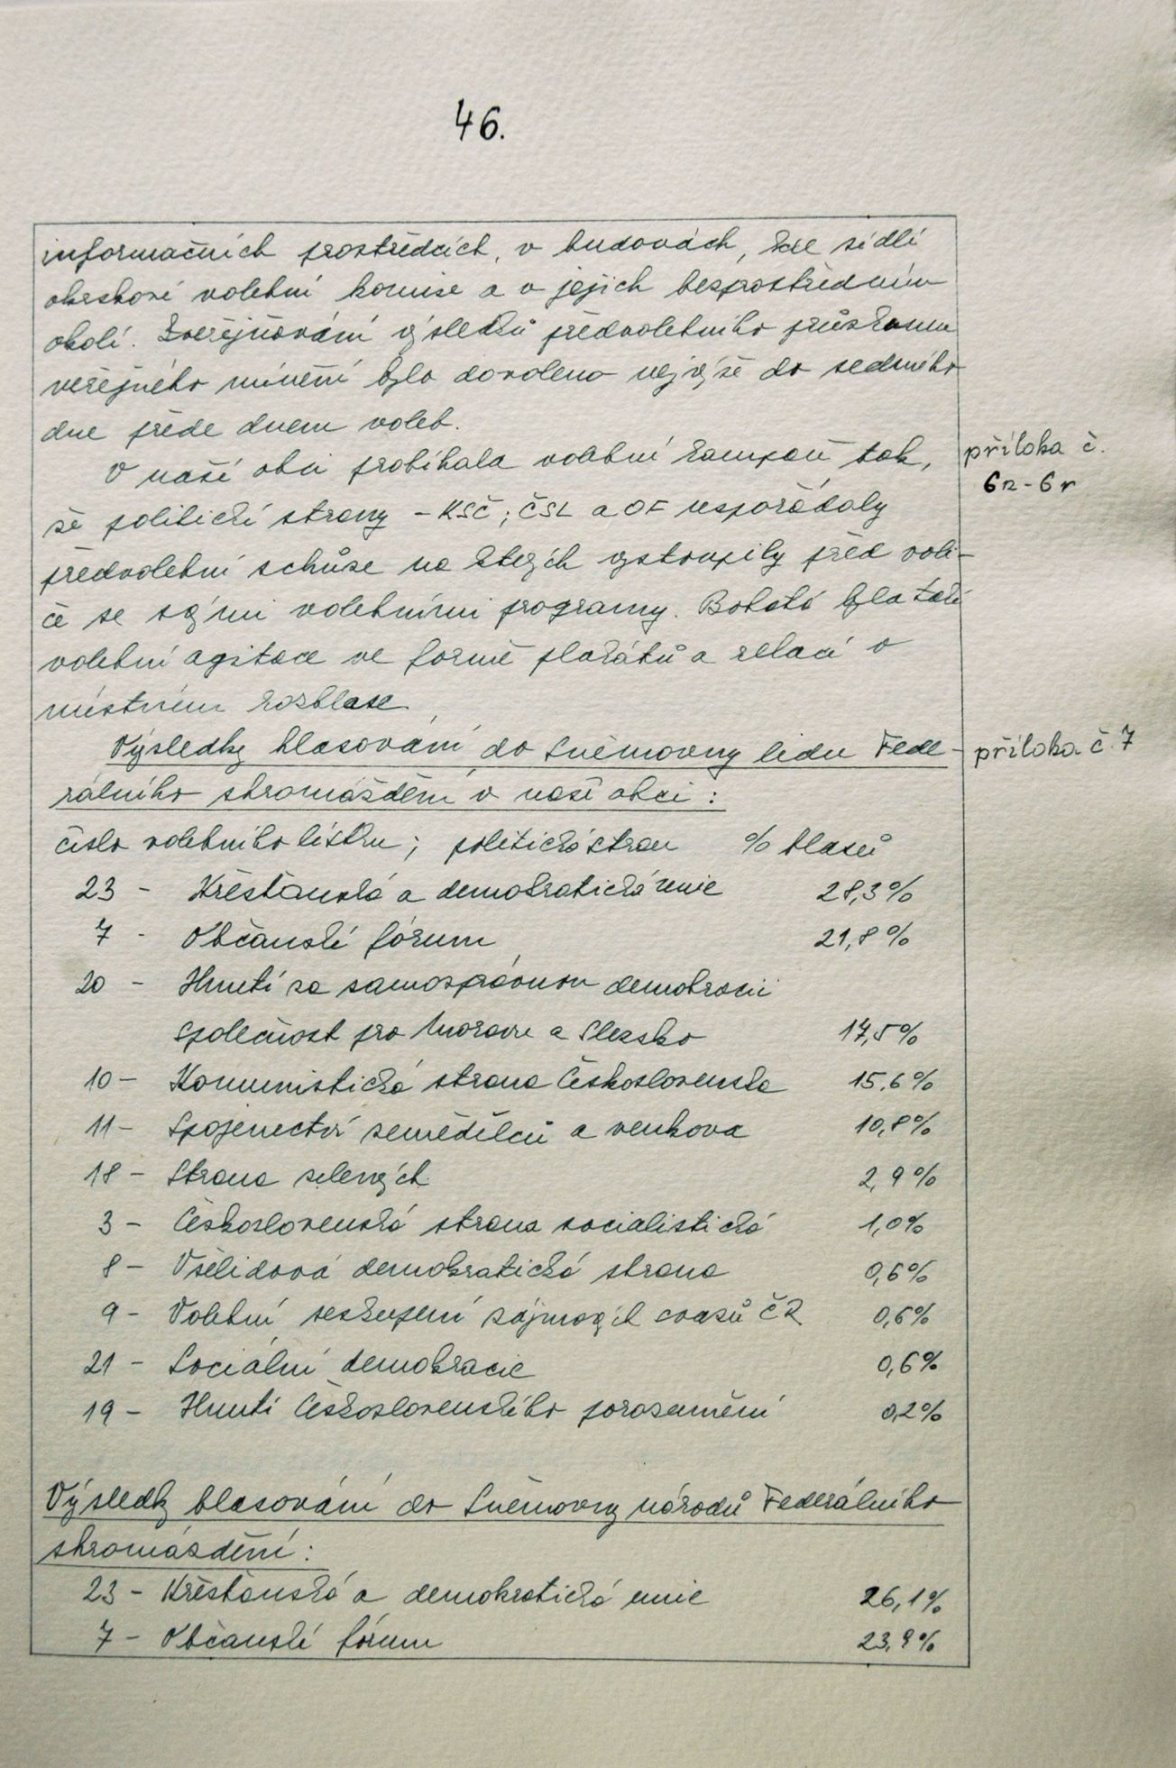 46.
informačních prostředcích, v budovách, kde sídlí
okrskové volební komise a v jejich bezprostředním
okolí. Zveřejňování výsledků předvolebního průzkumu
veřejného mínění bylo dovoleno nejvýše do sedmého
dne přede dnem voleb.
V naší obci probíhala volební kampaň tak,
příloha č.
6n-6r
že politické strany - KSČ; ČSL a OF uspořádaly
předvolební schůze na kterých vystoupily před voli-
če se svými volebními programy. Bohatá byla také
volební agitace ve formě plakátů a relací v
místním rozhlase.
Výsledky hlasování do Sněmovny lidu Fede-
příloha č. 7
rálního shromáždění v naší obci:
číslo volebního lístku; politická stran % hlasů
23 - Křesťanská a demokratická unie 28,3%
7 - Občanské fórum 21,8%
20 - Hnutí za samosprávnou demokracii
společnost pro Moravu a Slezsko 17,5%
10 - Komunistická strana Československa 15,6%
11 - Spojenectví zemědělců a venkova 10,8%
18 - Strana zelených 2,9%
3 - Československá strana socialistická 1,0%
8 - Všelidová demokratická strana 0,6%
9 - Volební seskupení zájmových svazů ČR 0,6%
21 - Sociální demokracie 0,6%
19 - Hnutí Československého porozumění 0,2%
Výsledky hlasování do Sněmovny národů Federálního
shromáždění:
23 - Křesťanská a demokratická unie 26,1%
7 - Občanské fórum 23,9%